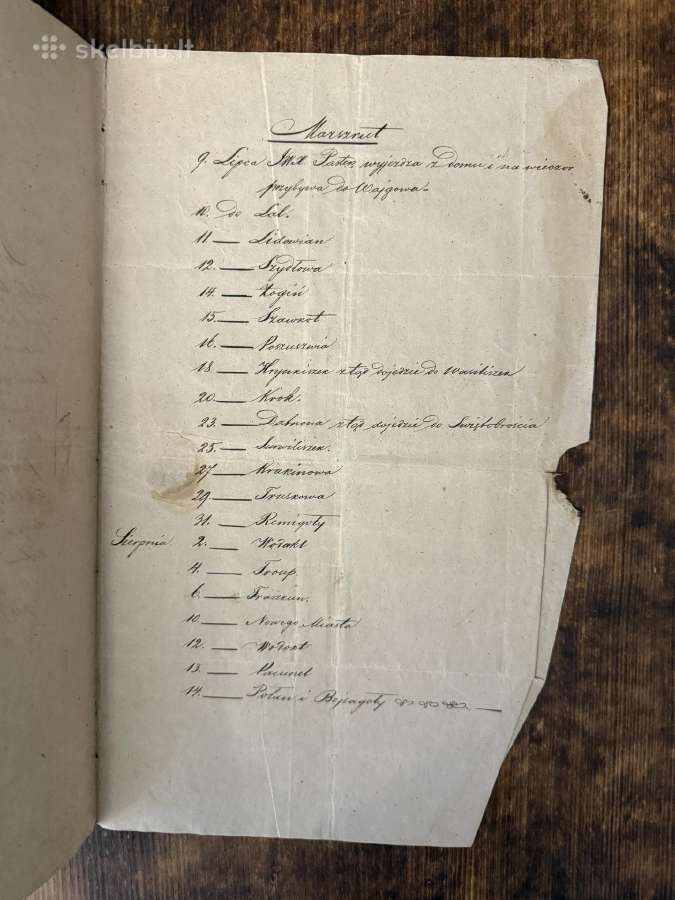 skelbiu.lt
Marszrut
9. Lipca JMX Paster wyjeżdża z domu i na wieczór
przybywa do Wajgowa.
10. do Lal.
11 — Lidowian
12. — Szydłowa
14. — Łogiń
15. — Szawkot
16. — Poszuszwia
18. — Hrynkiszek ztąd dojedzie do Wasiliszek
20. — Krok.
23. — Datnowa ztąd dojedzie do Świętobrościa
25. — Surwiliszek.
27 — Krakinowa
29 — Truskowa
31. — Remigoły
Sierpnia 2. — Wodakl
4. — Troup.
6. — Traszkun.
10 — Nowego Miasta
12. — Wodokt
13. — Pacunel
14. — Połan i Bejsagoły